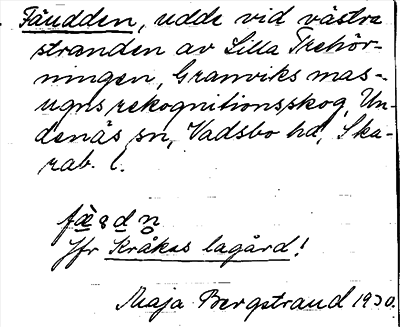 Fäudden, udde vid västra
stranden av Lilla Trehör-
ningen, Granviks mas-
ugns rekognitionsskog, Un-
denäs sn, Vadsbo hd, Ska-
rab. l.
Jfr Kråkas lagård!
Maja Bergstrand 1930.